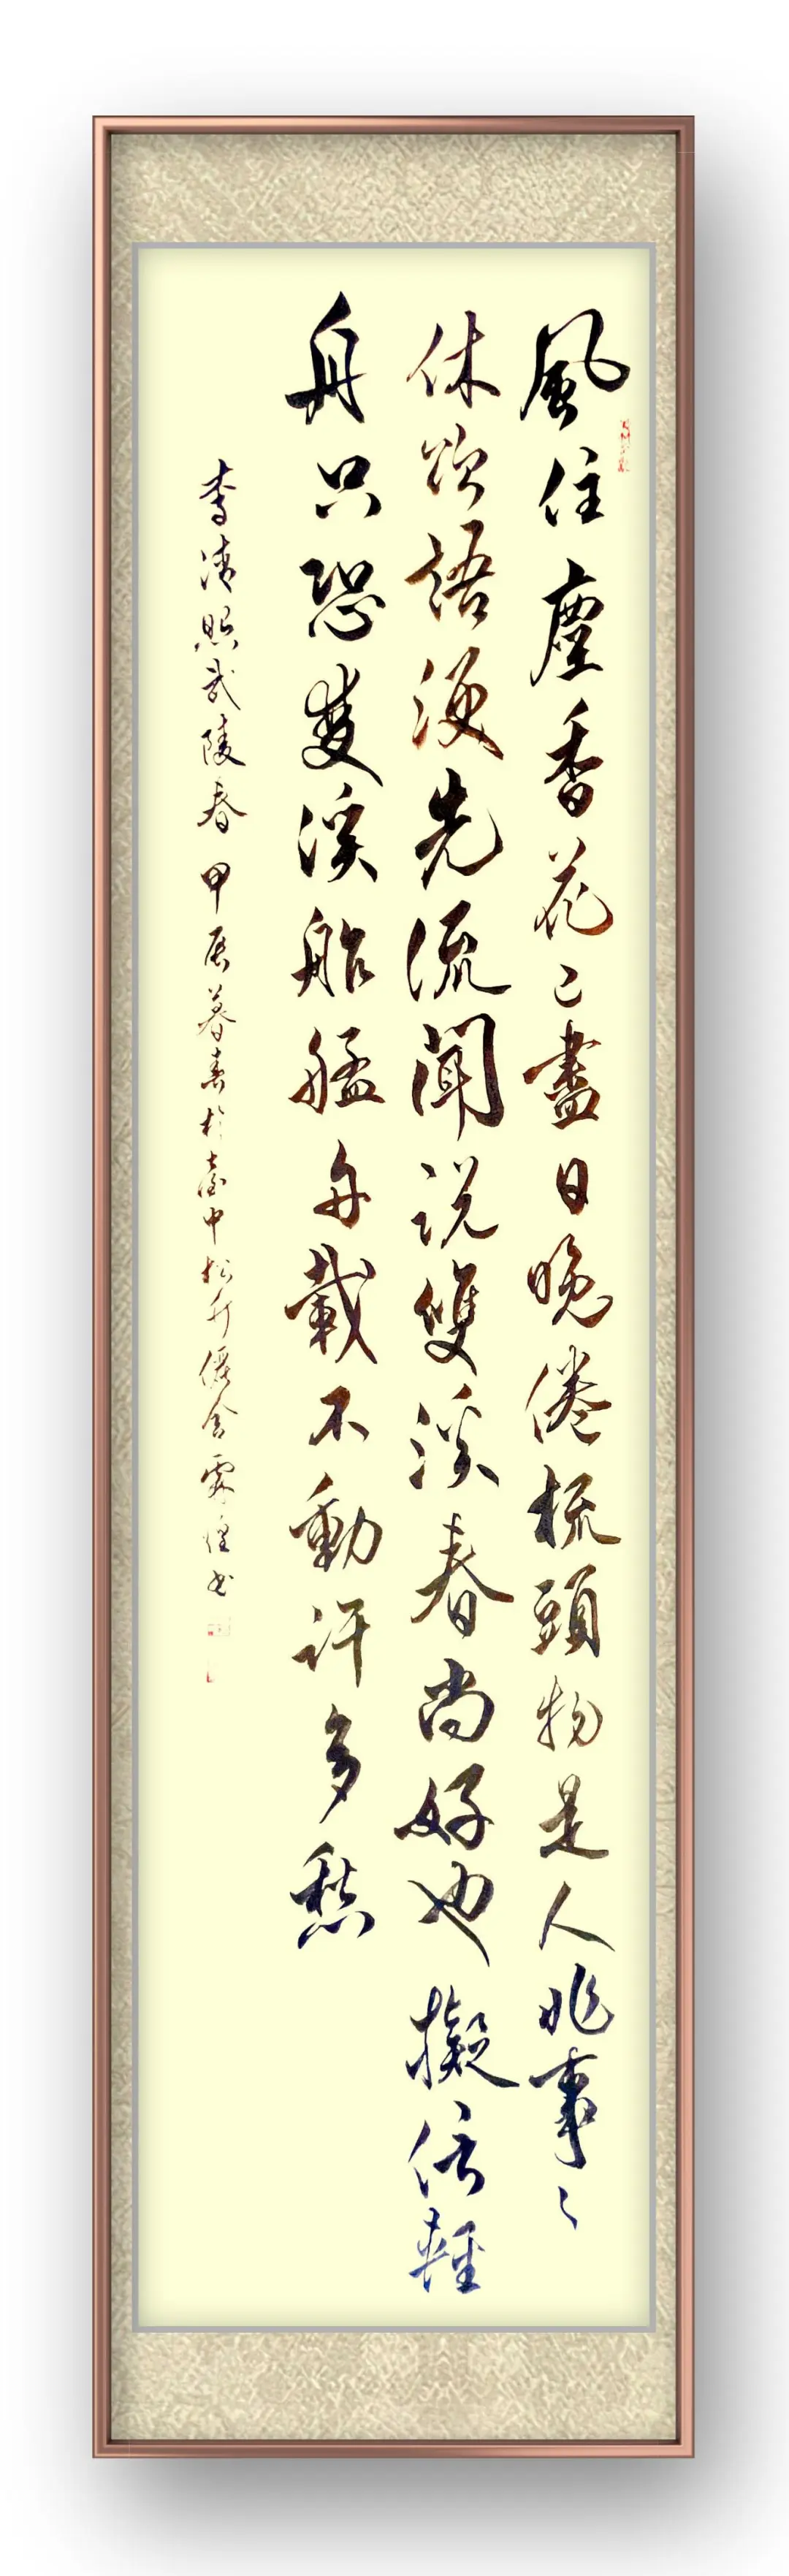 風住塵香花已盡日晚倦梳頭物是人非事々
休欲語淚先流聞說雙溪春尚好也擬泛輕
舟只恐雙溪舴艋舟載不動許多愁
李清照武陵春 甲辰暮春於臺中松竹舍煌書